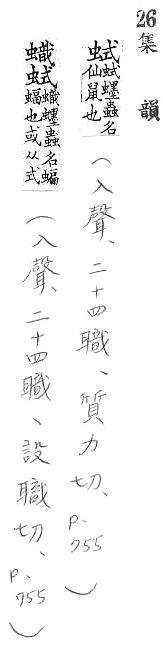 26 集韻
蟔蟲名仙鼠也 (入聲、二十四職、質力切、p.755)
蟙 蟙蟔蟲名蝠也或从式 (入聲、二十四職、設職切、p.755)